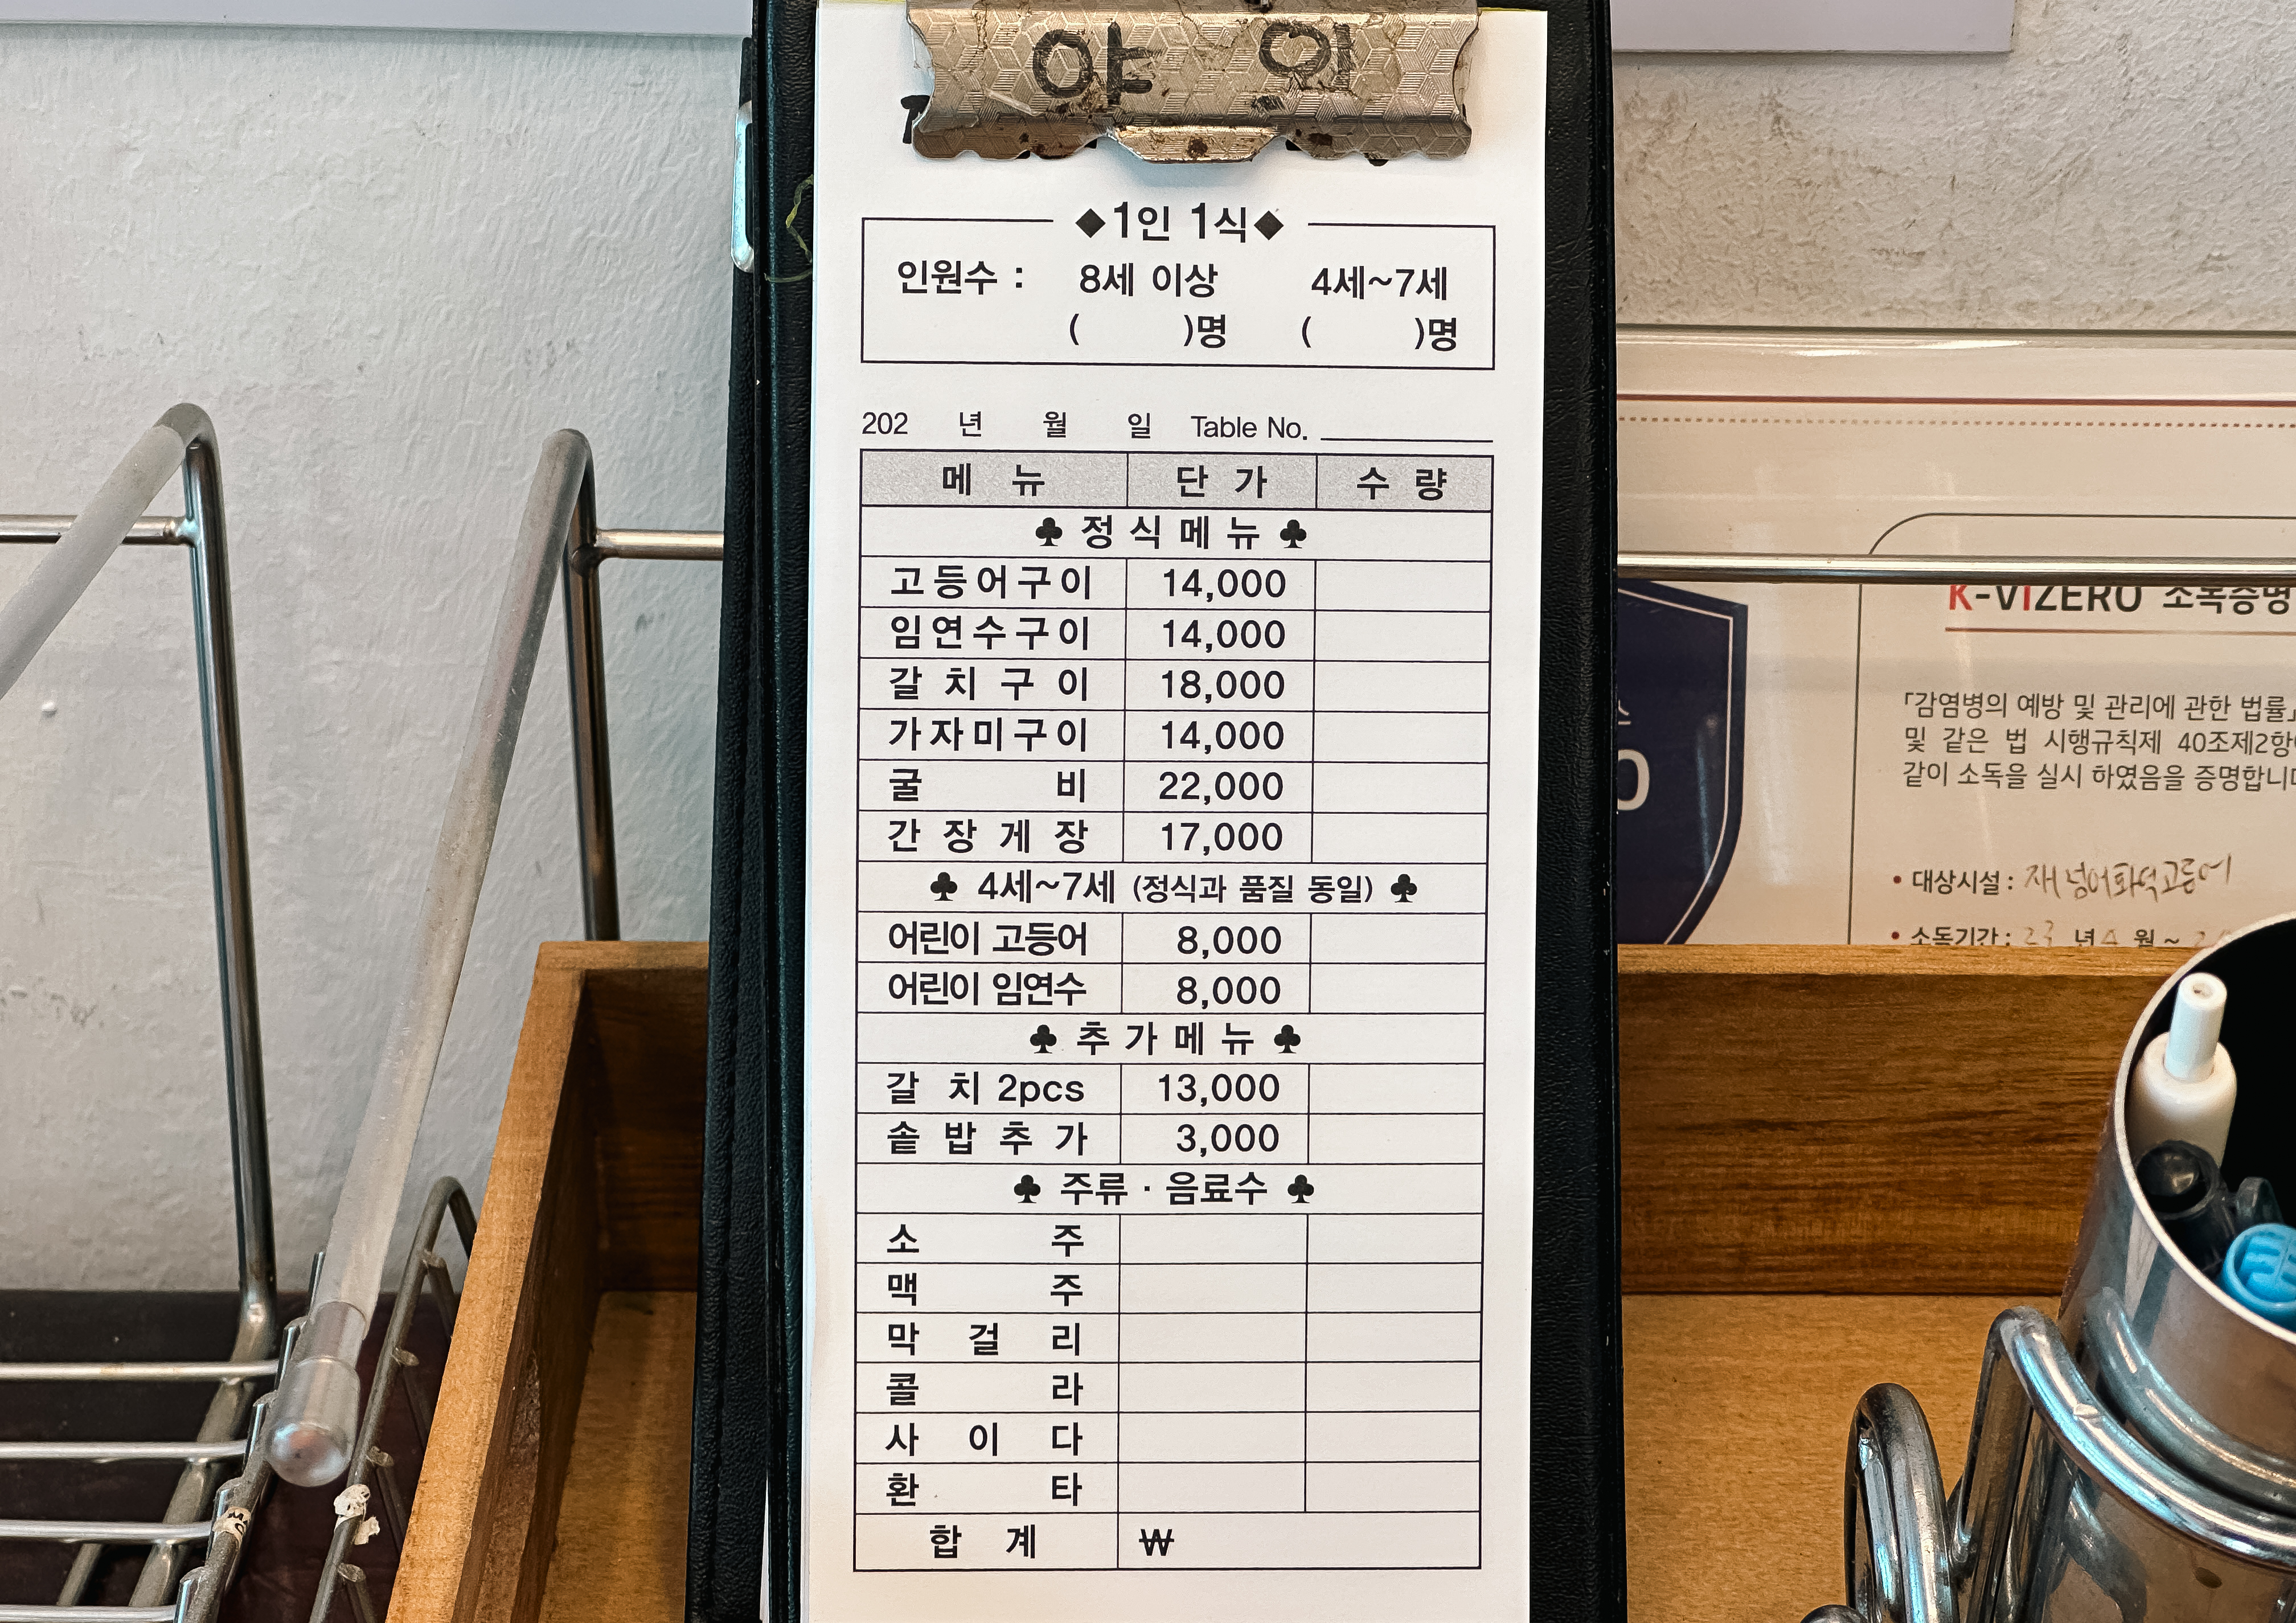 야 외
◆1인 1식◆
인원수 : 8세 이상 4세~7세
( )명 ( )명
202 년 월 일 Table No.
메 뉴 단 가 수 량
♣ 정 식 메 뉴 ♣
고등어구이 14,000
임연수구이 14,000
갈 치 구 이 18,000
가자미구이 14,000
굴 비 22,000
간 장 게 장 17,000
♣ 4세~7세 (정식과 품질 동일) ♣
어린이 고등어 8,000
어린이 임연수 8,000
♣ 추 가 메 뉴 ♣
갈 치 2pcs 13,000
솥 밥 추 가 3,000
♣ 주류 · 음료수 ♣
소 주
맥 주
막 걸 리
콜 라
사 이 다
환 타
합 계 ₩
K-VIZERO 소독증명
「감염병의 예방 및 관리에 관한 법률」
및 같은 법 시행규칙제 40조제2항
같이 소독을 실시 하였음을 증명합니
• 대상시설 : 재넘어화덕고등어
• 소독기간 : 23 년 월 ~